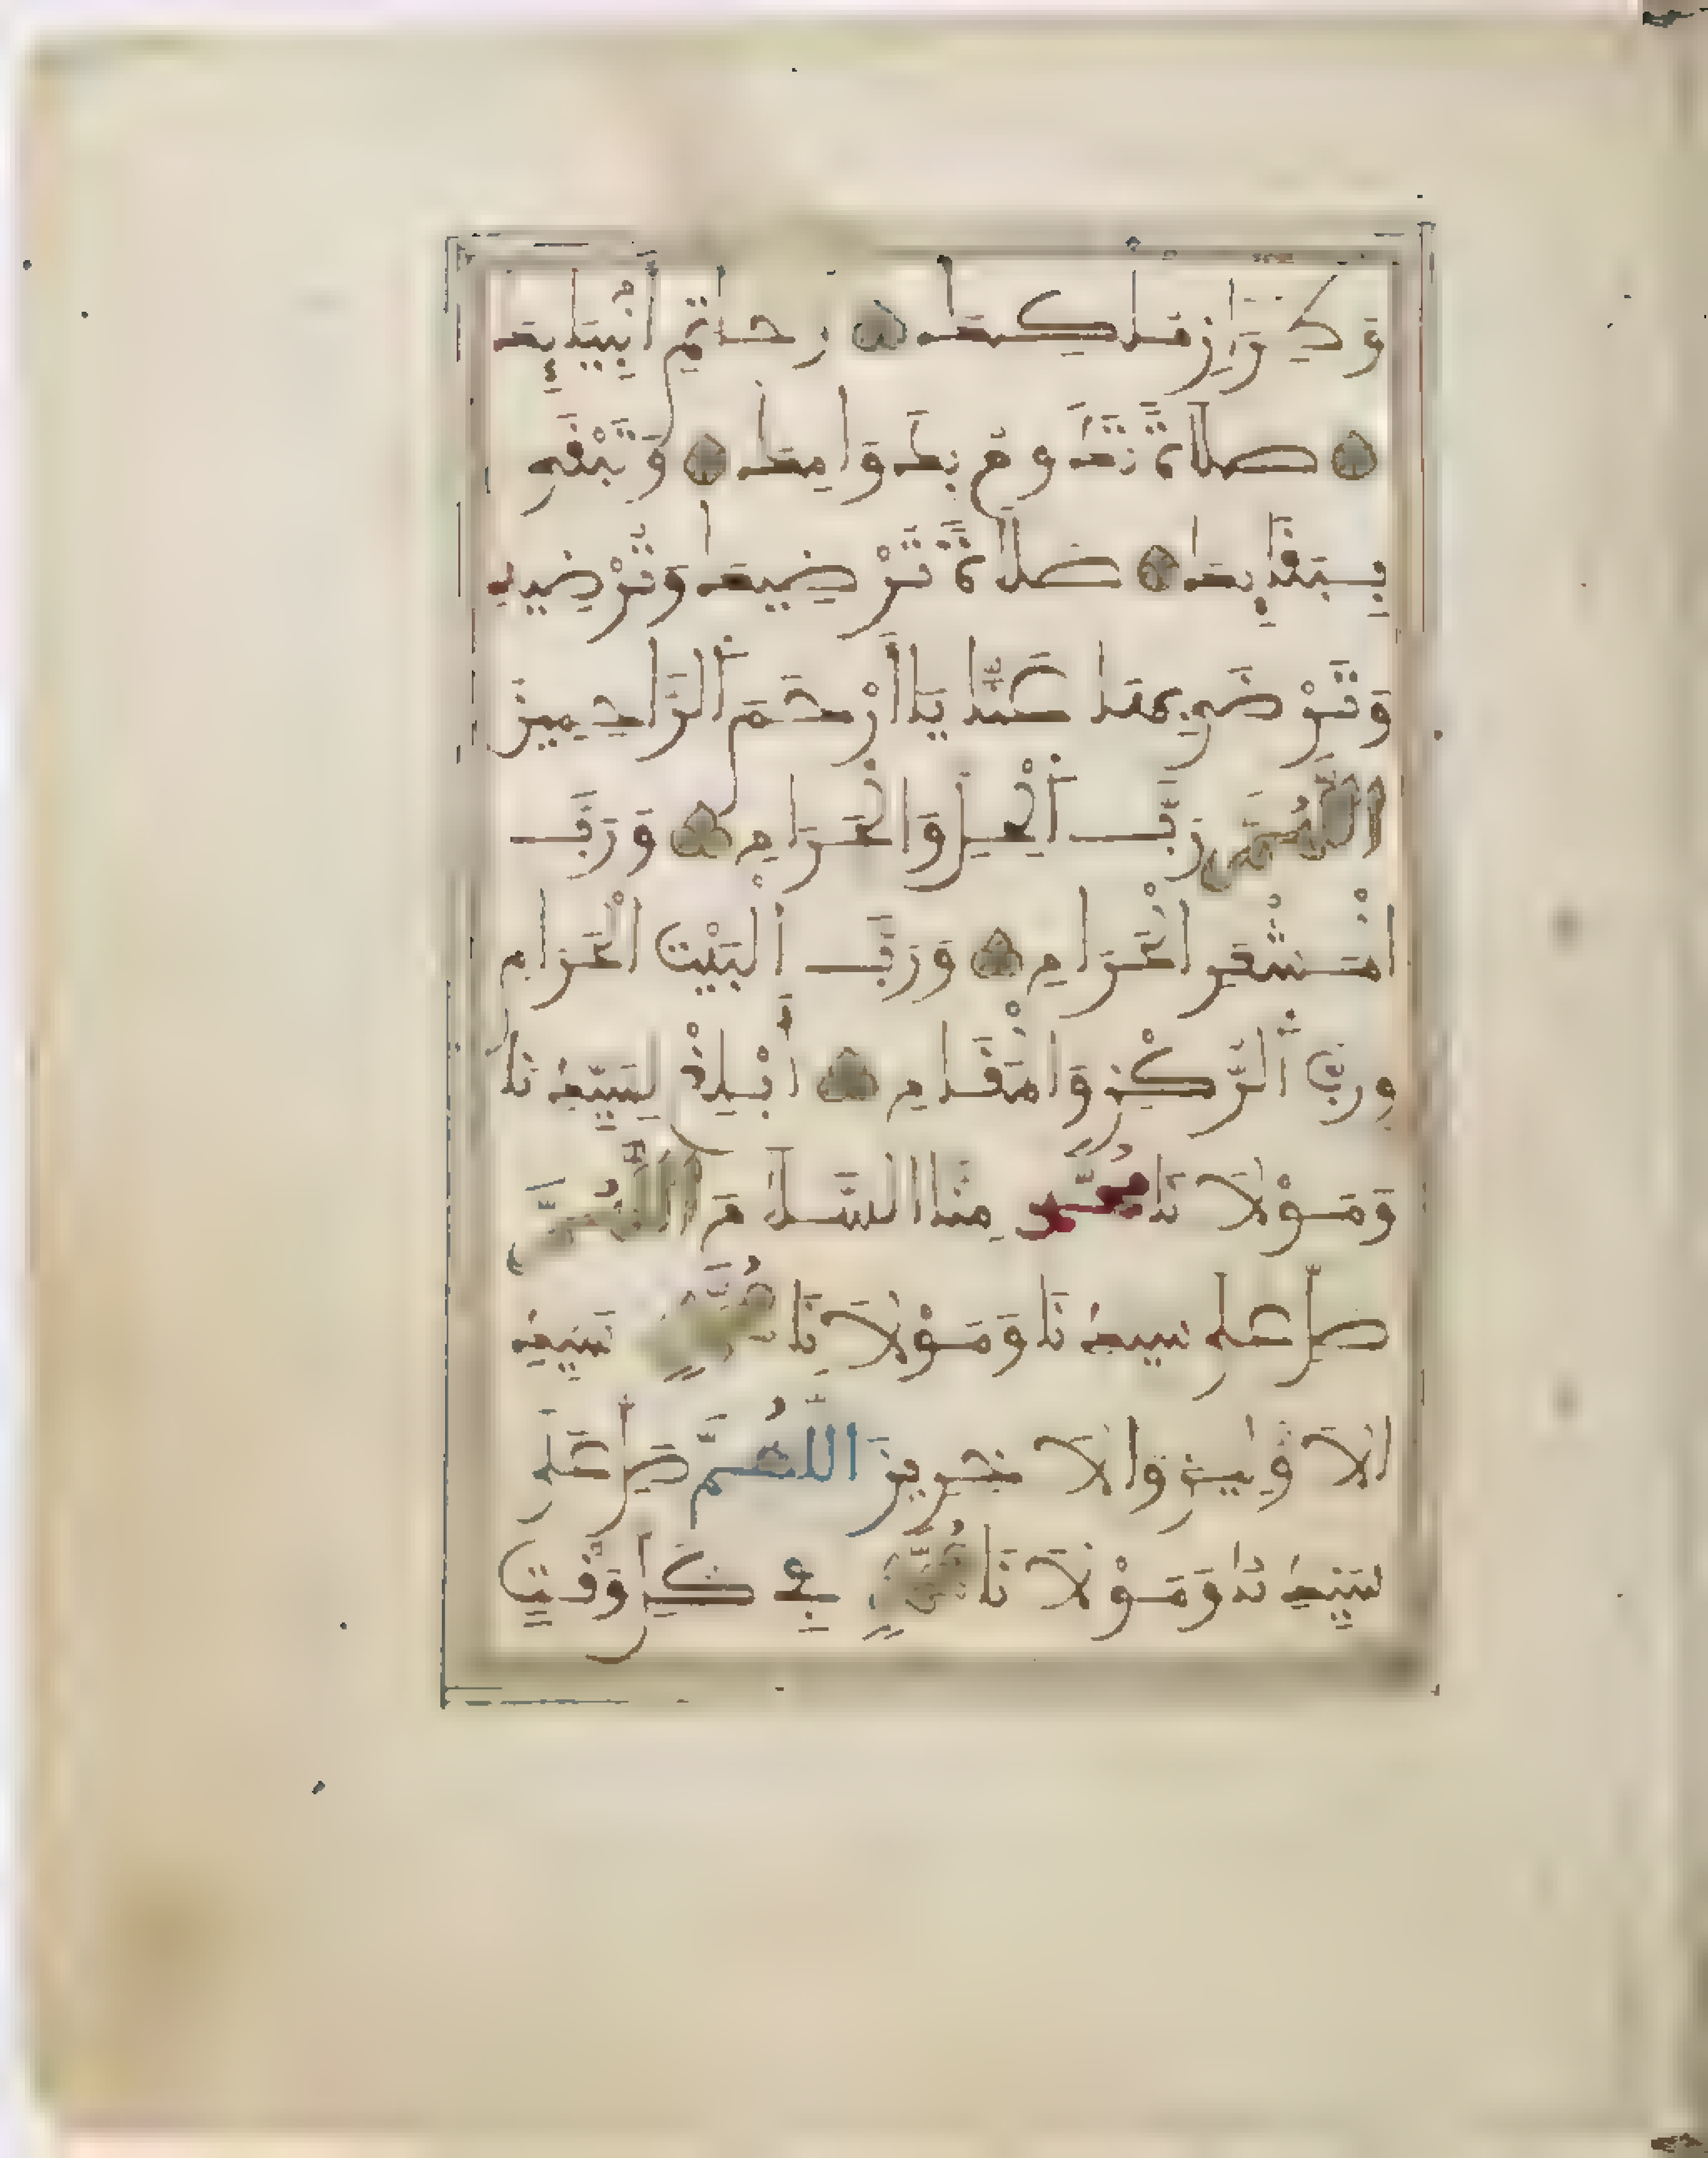 وَطِرَازِ مُلْكِكَ وَخَاتِمِ أَنْبِيَائِكَ
صَلَاةً تَدُومُ بِدَوَامِكَ وَتَبْقَى
بِبَقَائِكَ صَلَاةً تُرْضِيكَ وَتُرْضِيهِ
وَتَرْضَى بِهَا عَنَّا يَا أَرْحَمَ الرَّاحِمِينَ
اللَّهُمَّ رَبَّ الْحِلِّ وَالْحَرَامِ وَرَبَّ
الْمَشْعَرِ الْحَرَامِ وَرَبَّ الْبَيْتِ الْحَرَامِ
وَرَبَّ الرُّكْنِ وَالْمَقَامِ أَبْلِغْ لِسَيِّدِنَا
وَمَوْلَانَا مُحَمَّدٍ مِنَّا السَّلَامَ اللَّهُمَّ
صَلِّ عَلَى سَيِّدِنَا وَمَوْلَانَا مُحَمَّدٍ سَيِّدِ
الْأَوَّلِينَ وَالْآخِرِينَ اللَّهُمَّ صَلِّ عَلَى
سَيِّدِنَا وَمَوْلَانَا مُحَمَّدٍ فِي كُلِّ وَقْتٍ